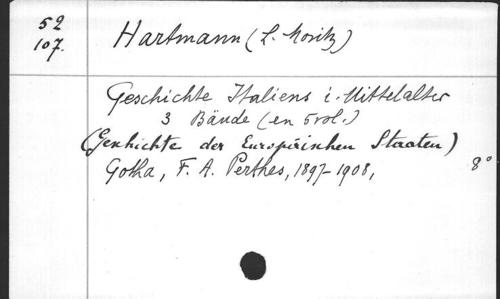 52
107.
Hartmann (L. Moritz)
Geschichte Italiens i. Mittelalter
3 Bände (en 5 vol.)
(Geshichte der Europäischen Staaten)
Gotha, F. A. Perthes, 1897-1908, 8°